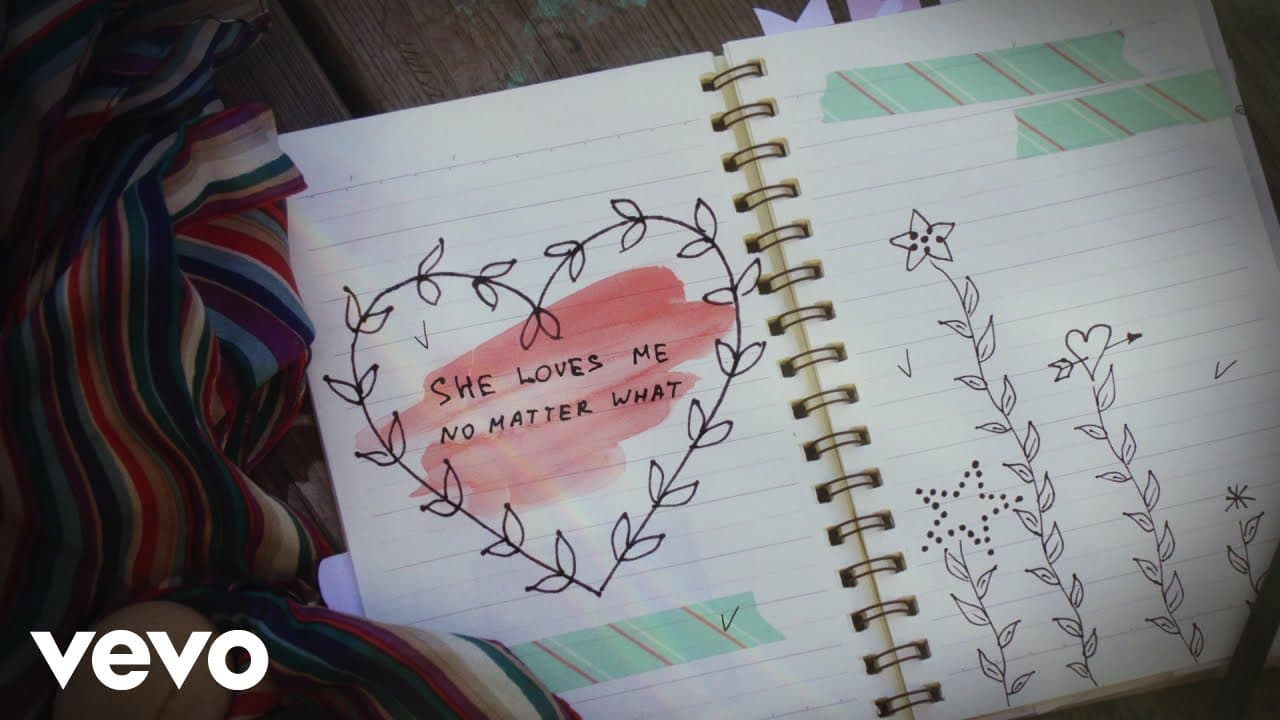 SHE LOVES ME
NO MATTER WHAT
vevo